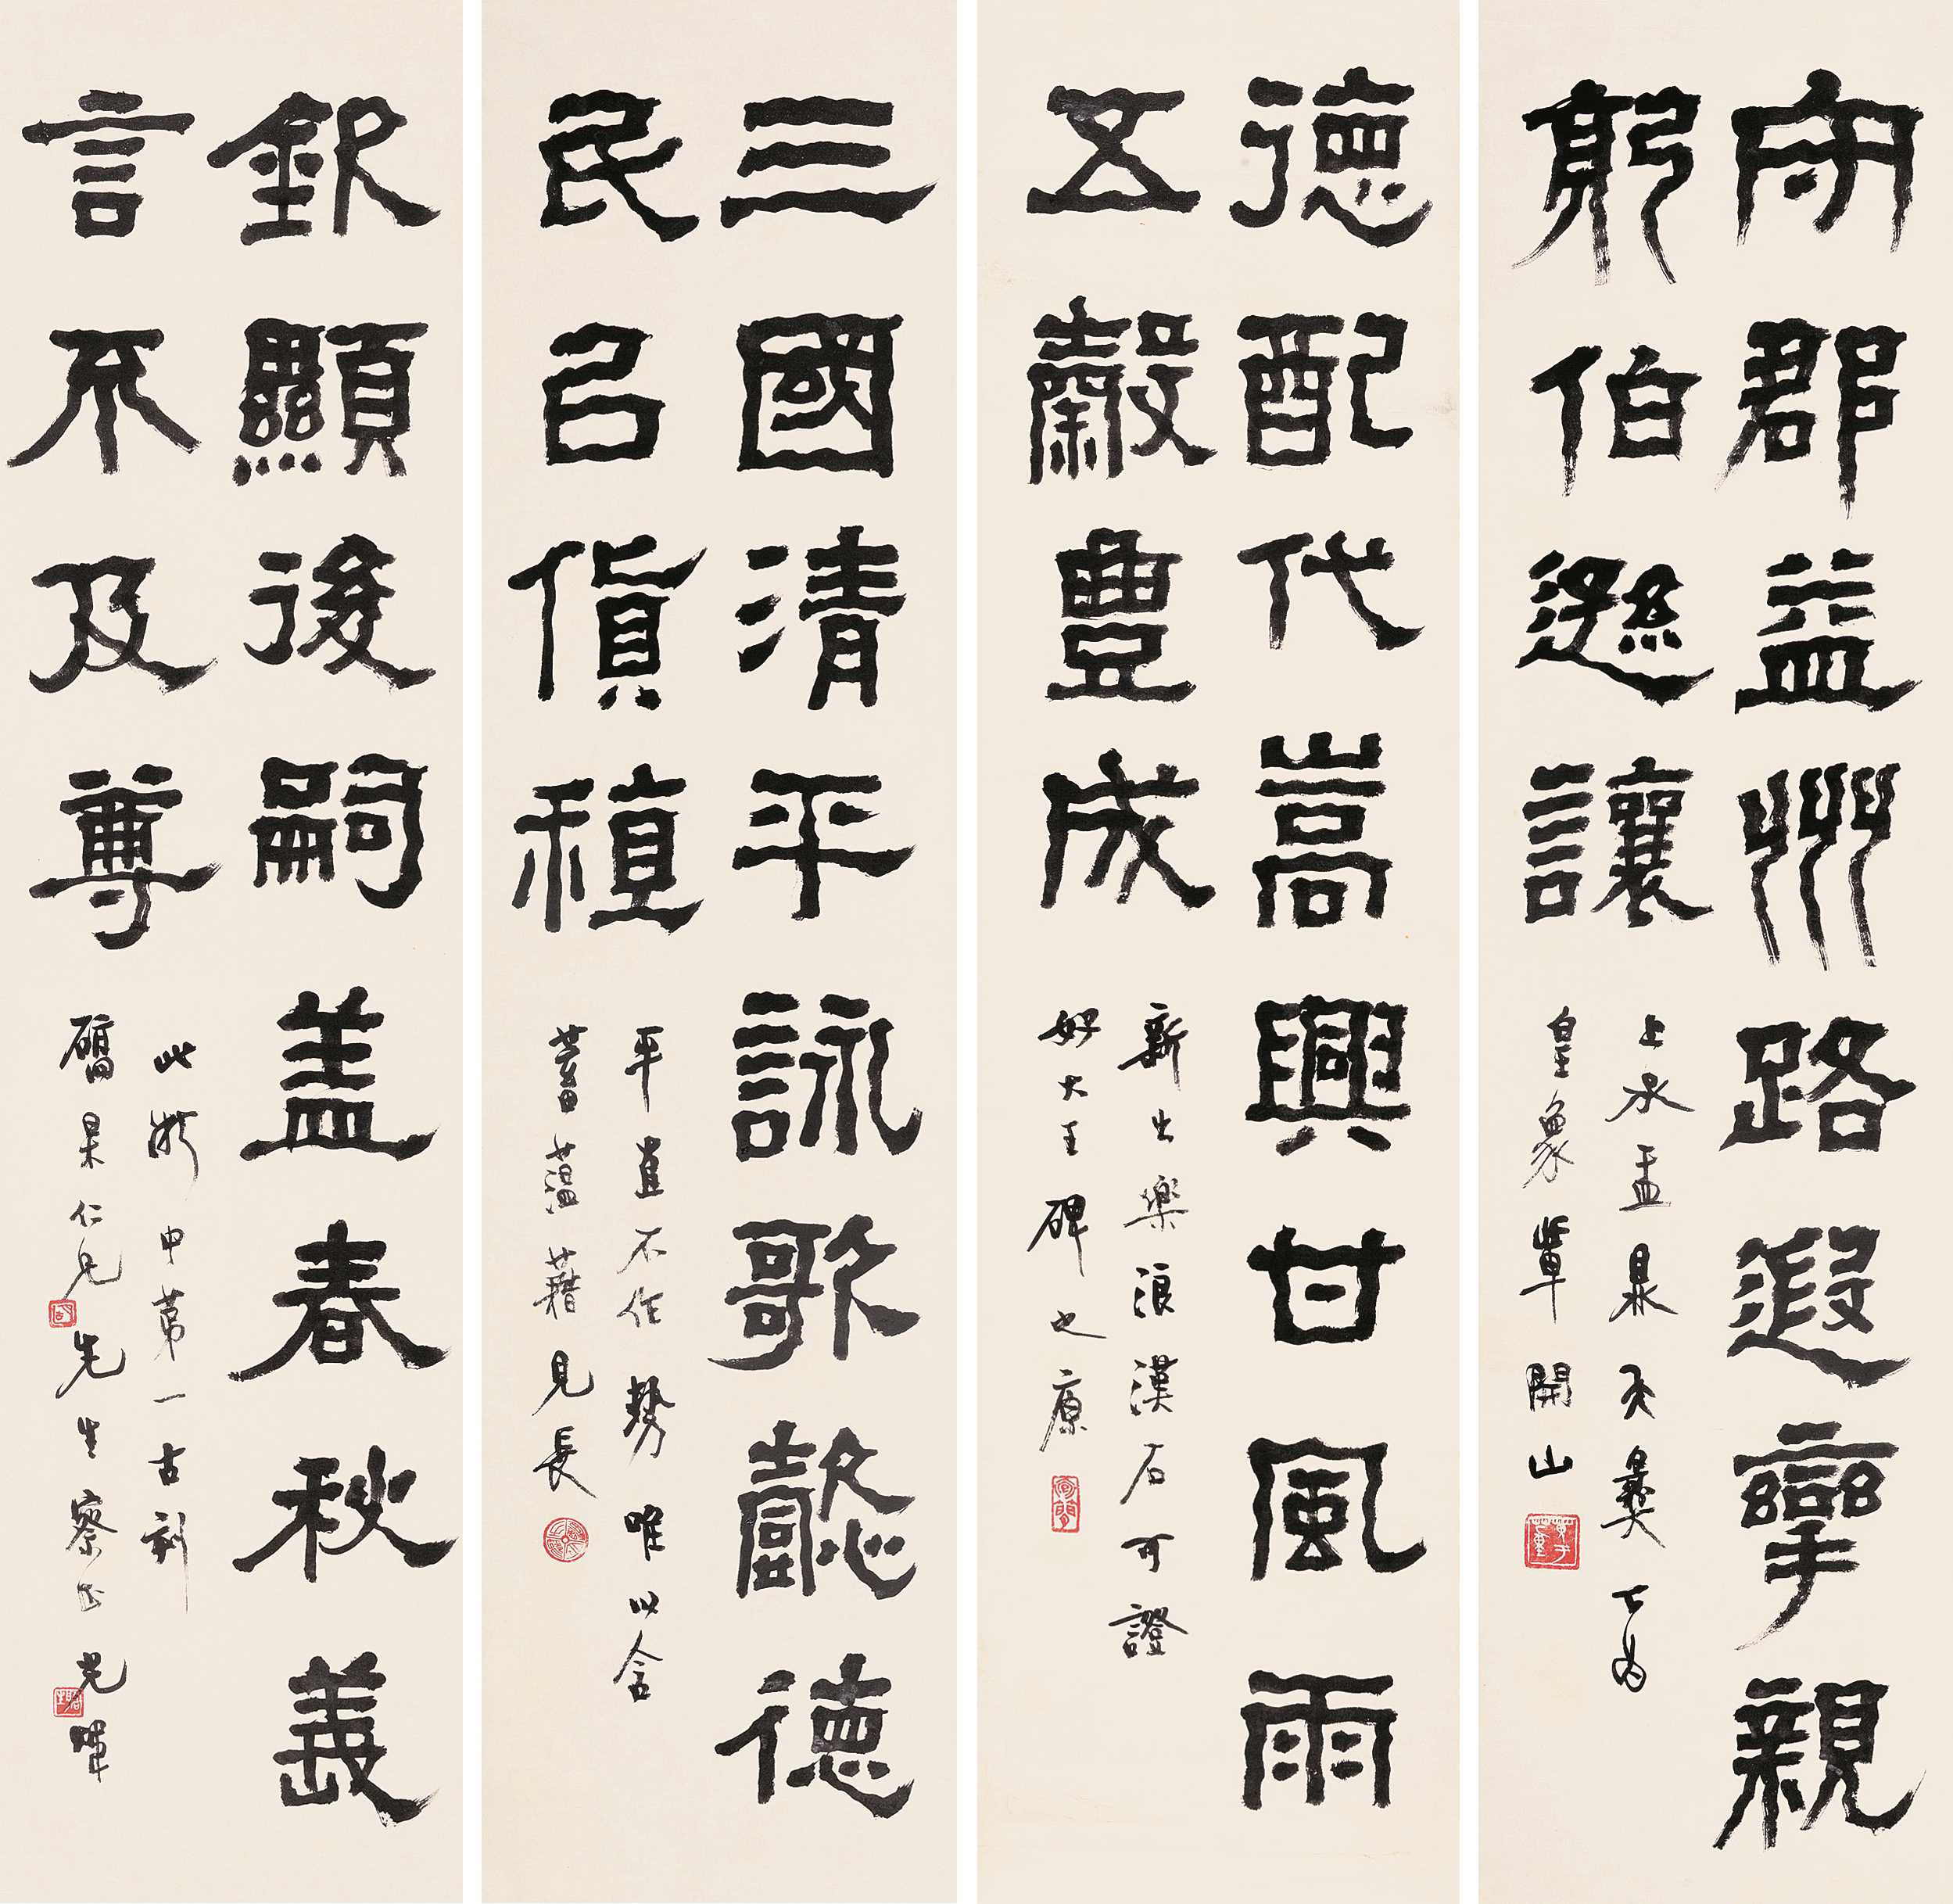 守郡益州路遐攣親
躬伯遜讓
上承盂鼎夨彝下為
皇象輩開山
德配代嵩興甘風雨
五穀豐成
新出樂浪漢石可證
好大王碑之原
三國清平詠歌懿德
民㠯貨稙
平直不作勢唯以含
蓄蘊藉見長
欽顯後嗣蓋春秋義
言不及尊
此浙中第一古刻
杲仁兄先生察 光暉